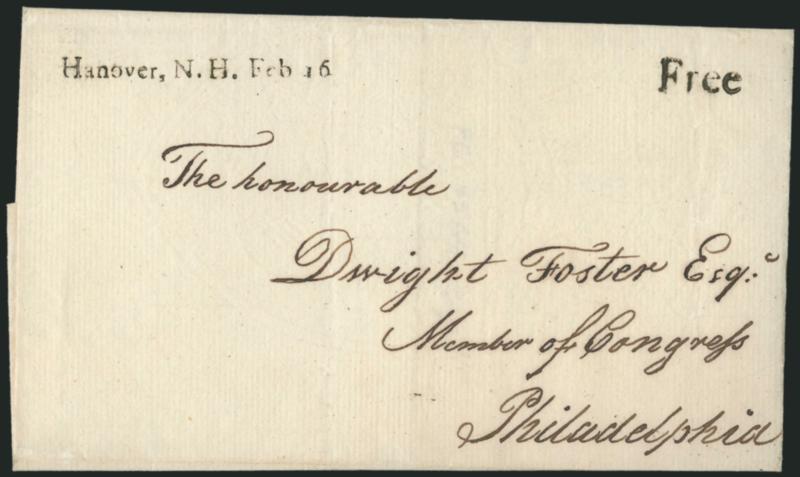 Hanover, N. H. Feb 16
Free
The honourable
Dwight Foster Esq.ͬ
Member of Congreſs
Philadelphia